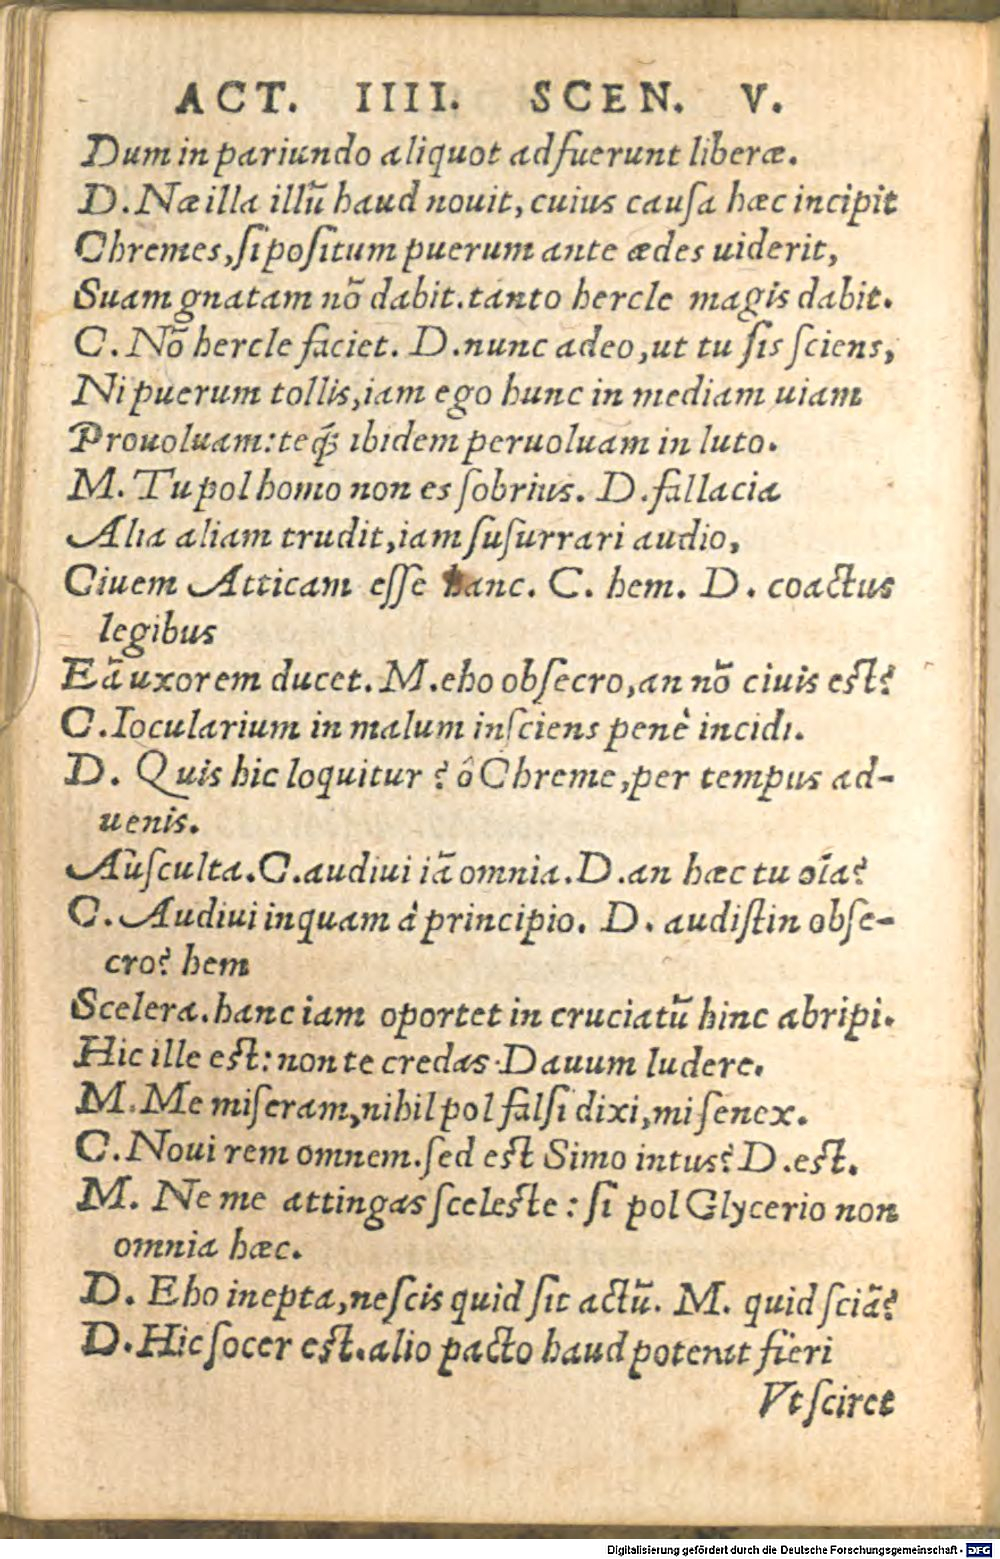 ACT. IIII. SCEN. V.
Dum in pariundo aliquot adfuerunt liberæ.
D. Næ illa illũ haud nouit, cuius cauſa hæc incipit
Chremes, ſi poſitum puerum ante ædes uiderit,
Suam gnatam nõ dabit. tanto hercle magis dabit.
C. Nõ hercle faciet. D. nunc adeo, ut tu ſis ſciens,
Ni puerum tollis, iam ego hunc in mediam uiam
Prouoluam: teq́; ibidem peruoluam in luto.
M. Tu pol homo non es ſobrius. D. fallacia
Alia aliam trudit, iam ſuſurrari audio,
Ciuem Atticam eſſe hanc. C. hem. D. coactus
legibus
Eã uxorem ducet. M. eho obſecro, an nõ ciuis eſt?
C. Iocularium in malum inſciens penè incidi.
D. Quis hic loquitur? ô Chreme, per tempus ad-
uenis.
Auſculta. C. audiui iã omnia. D. an hæc tu oĩa?
C. Audiui inquam à principio. D. audiſtin obſe-
cro? hem
Scelera. hanc iam oportet in cruciatũ hinc abripi.
Hic ille eſt: non te credas Dauum ludere.
M. Me miſeram, nihil pol falſi dixi, mi ſenex.
C. Noui rem omnem. ſed eſt Simo intus? D. eſt.
M. Ne me attingas ſceleſte: ſi pol Glycerio non
omnia hæc.
D. Eho inepta, neſcis quid ſit actũ. M. quid ſciã?
D. Hic ſocer eſt. alio pacto haud poterat fieri
Vt ſciret
Digitalisierung gefördert durch die Deutsche Forschungsgemeinschaft - DFG